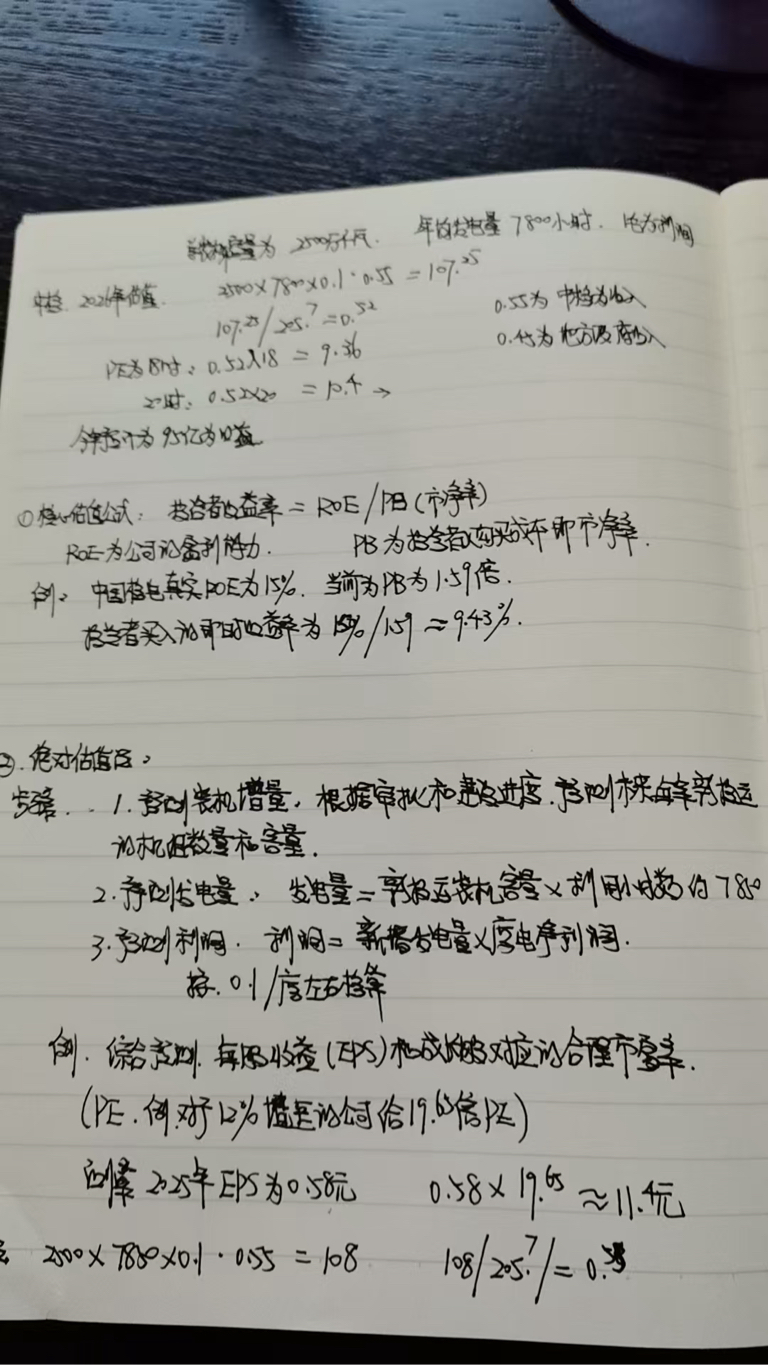 装机容量为 2500万千瓦. 年均发电量 7800小时.
中核. 2026年估值. 2500×7800×0.1·0.55 = 107.25
107.25/205.7=0.52 0.55为中核为收入
PE为18时: 0.52×18 = 9.36 0.45为地方政府收入
20时: 0.52×20 = 10.4 →
今年预计为95亿为收益
①核心估值公式: 投资者收益率 = ROE/PB(市净率)
ROE为公司的盈利能力. PB为投资者购买成本即市净率.
例: 中国核电真实ROE为15%. 当前为PB为1.59倍.
投资者买入的即时收益率为 15%/1.59 ≈9.43%.
②.绝对估值法:
步骤. . 1. 预测装机增量, 根据审批和建设进度.预测未来每年新投运
的机组数量和容量.
2.预测发电量. 发电量=新投运装机容量×利用小时数 约7850
3.预测利润. 利润= 新增发电量×度电净利润.
按.0.1/度左右核算
例. 综合预测.每股收益(EPS)和成长股对应的合理市盈率.
(PE.例.对于12%增速的公司给19.65倍PE)
测算2025年EPS为0.58元 0.58×19.65 ≈11.4元
2500×7850×0.1·0.55 =108 108/205.7/=0.